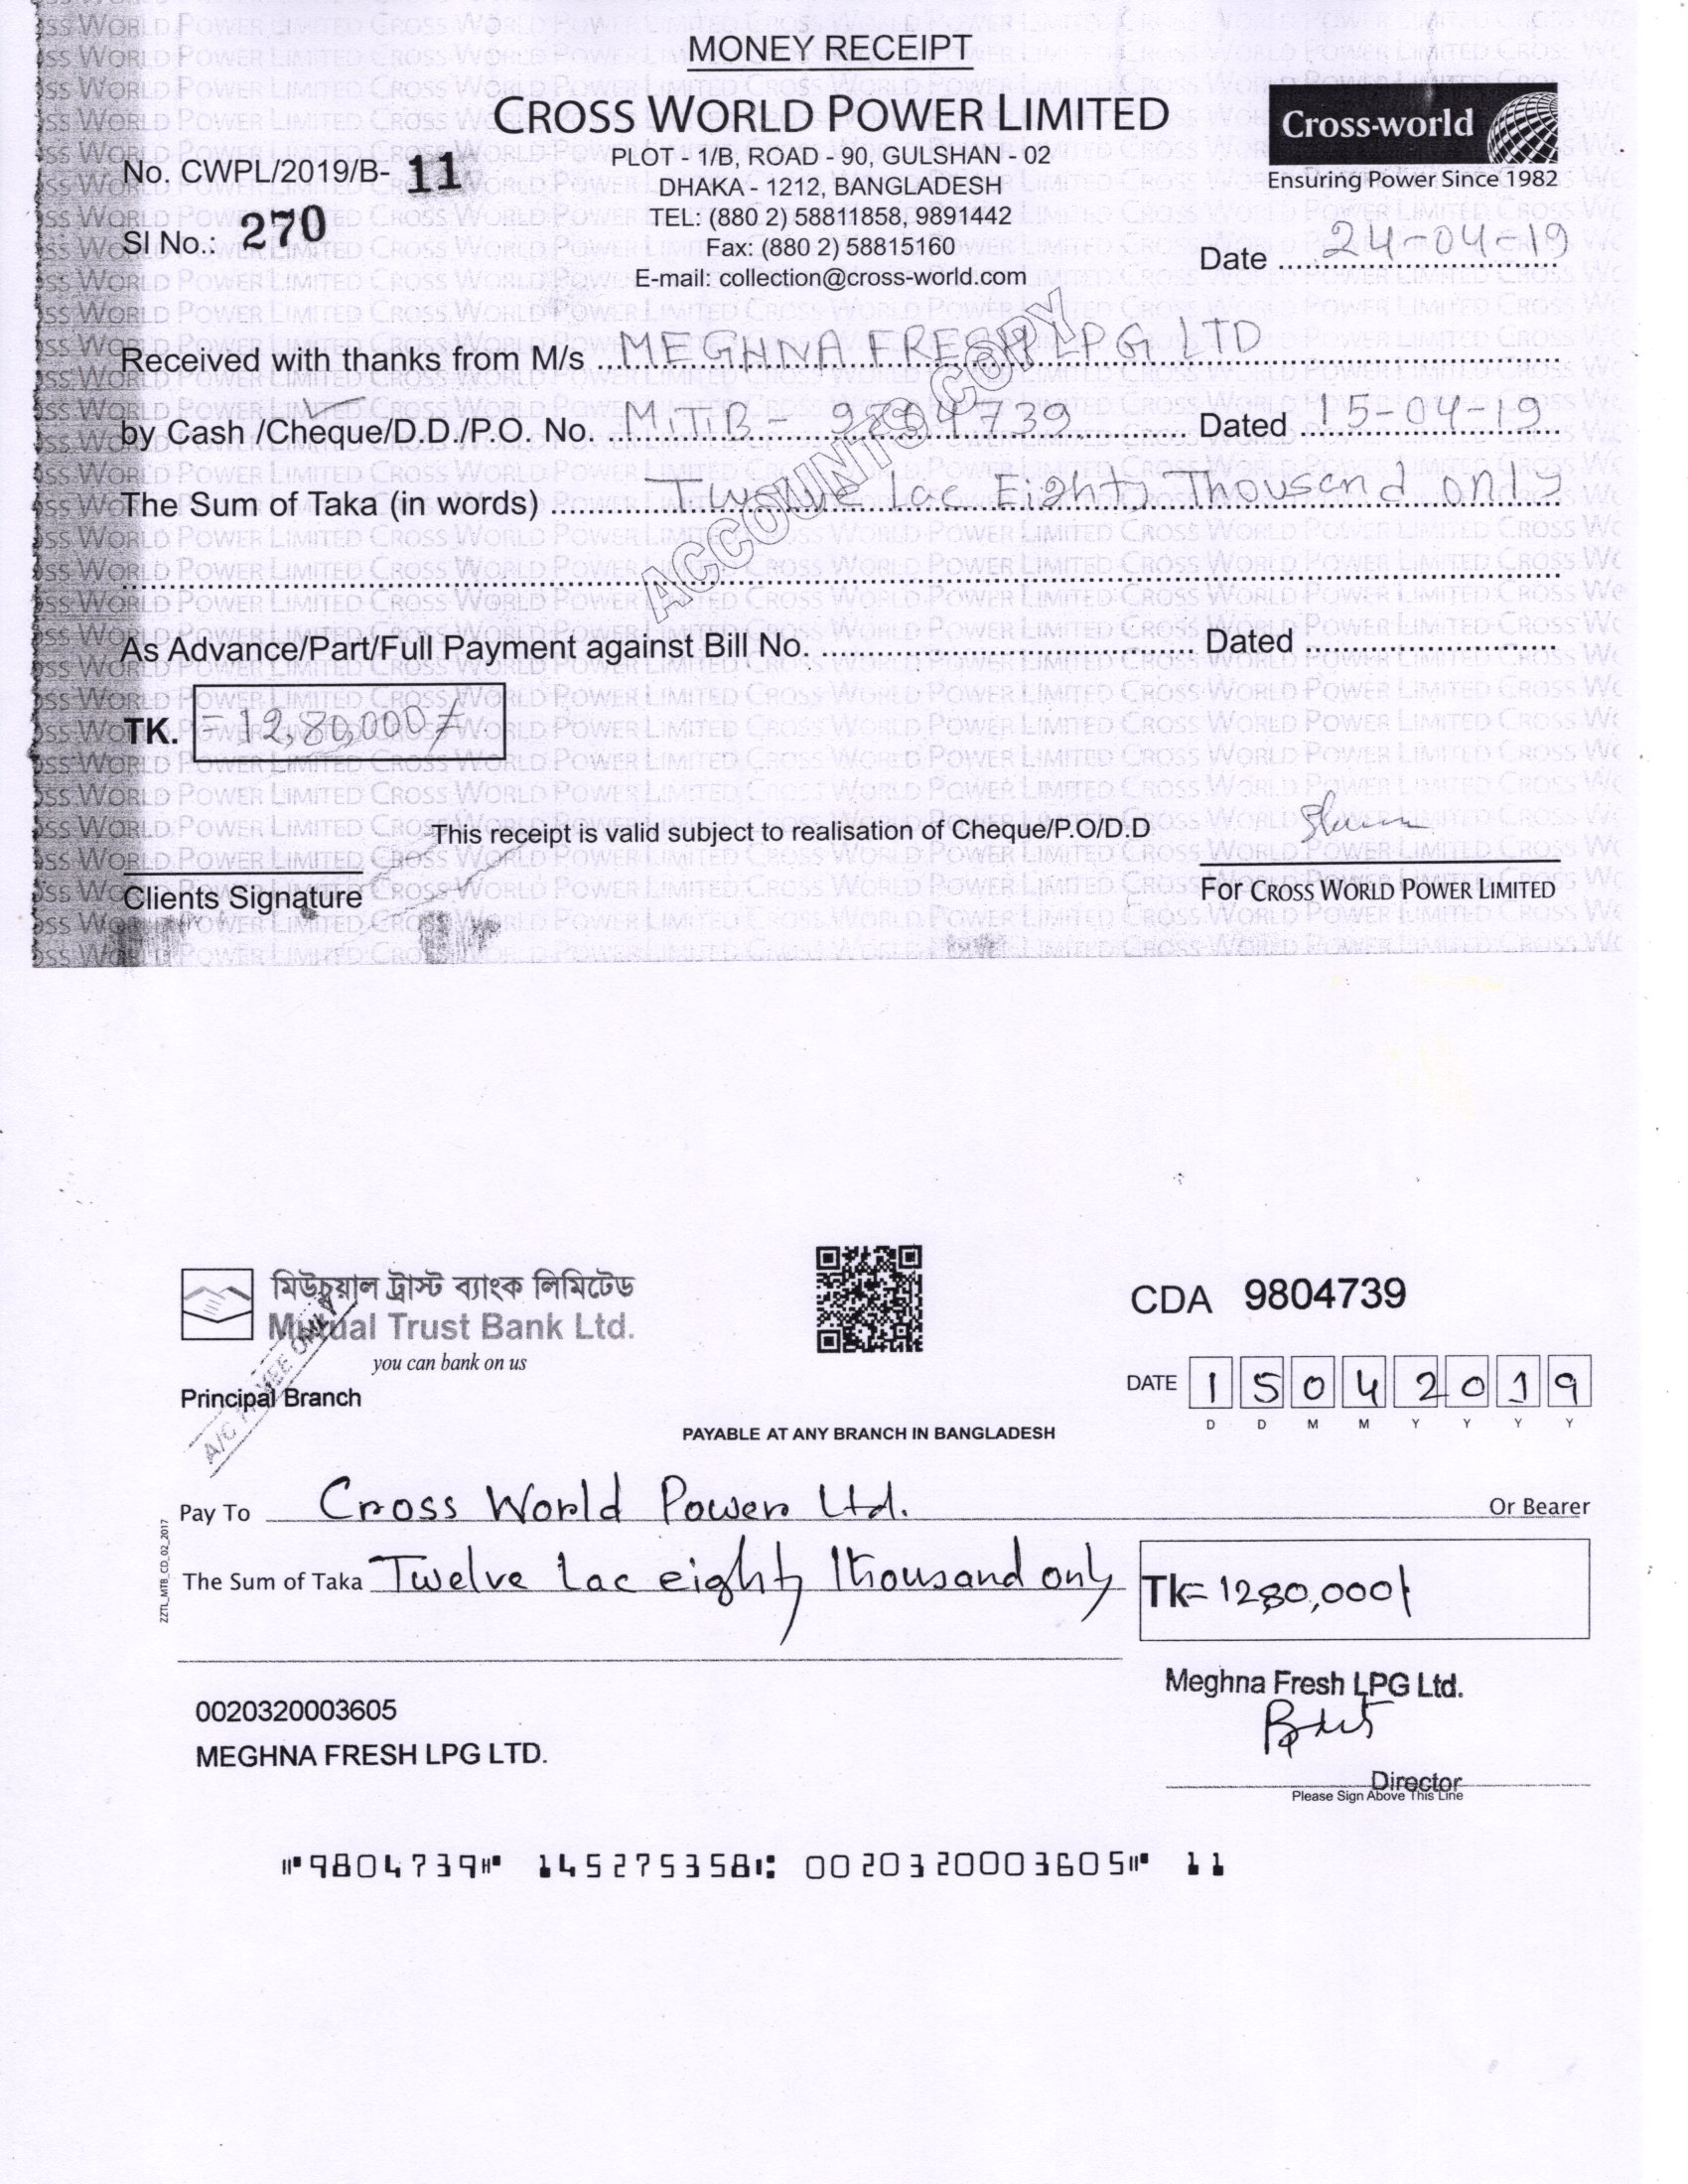 MONEY RECEIPT
CROSS WORLD POWER LIMITED
Cross-world
Ensuring Power Since 1982
No. CWPL/2019/B- 11
PLOT - 1/B, ROAD - 90, GULSHAN - 02
DHAKA - 1212, BANGLADESH
TEL: (880 2) 58811858, 9891442
Sl No.: 270
Fax: (880 2) 58815160
Date 24-04-19
E-mail: collection@cross-world.com
Received with thanks from M/s MEGHNA FRESH LPG LTD
by Cash /Cheque/D.D./P.O. No. M.T.B - 9804739 Dated 15-04-19
The Sum of Taka (in words) Twelve Lac Eighty Thousand only
ACCOUNTS COPY
As Advance/Part/Full Payment against Bill No. Dated
TK. =12,80,000/=
This receipt is valid subject to realisation of Cheque/P.O/D.D
Clients Signature
For CROSS WORLD POWER LIMITED
মিউচুয়াল ট্রাস্ট ব্যাংক লিমিটেড
Mutual Trust Bank Ltd.
you can bank on us
Principal Branch
A/C PAYEE ONLY
CDA 9804739
DATE 1 5 0 4 2 0 1 9
D D M M Y Y Y Y
PAYABLE AT ANY BRANCH IN BANGLADESH
Pay To Cross World Power Ltd. Or Bearer
The Sum of Taka Twelve Lac eighty thousand only
Tk= 1280,000/
ZZTL_MTB_CD_02_2017
Meghna Fresh LPG Ltd.
0020320003605
MEGHNA FRESH LPG LTD.
Director
Please Sign Above This Line
⑈9804739⑈ 145275358⑆ 0020320003605⑈ 11